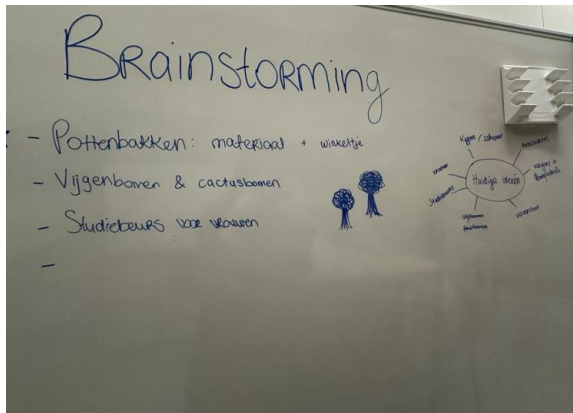 Brainstorming
- Pottenbakken: materiaal + winkeltje
- Vijgenbomen & cactusbomen
- Studiebeurs voor vrouwen
-
Huidige ideeën
Kippen / schapen
Studiebeurs